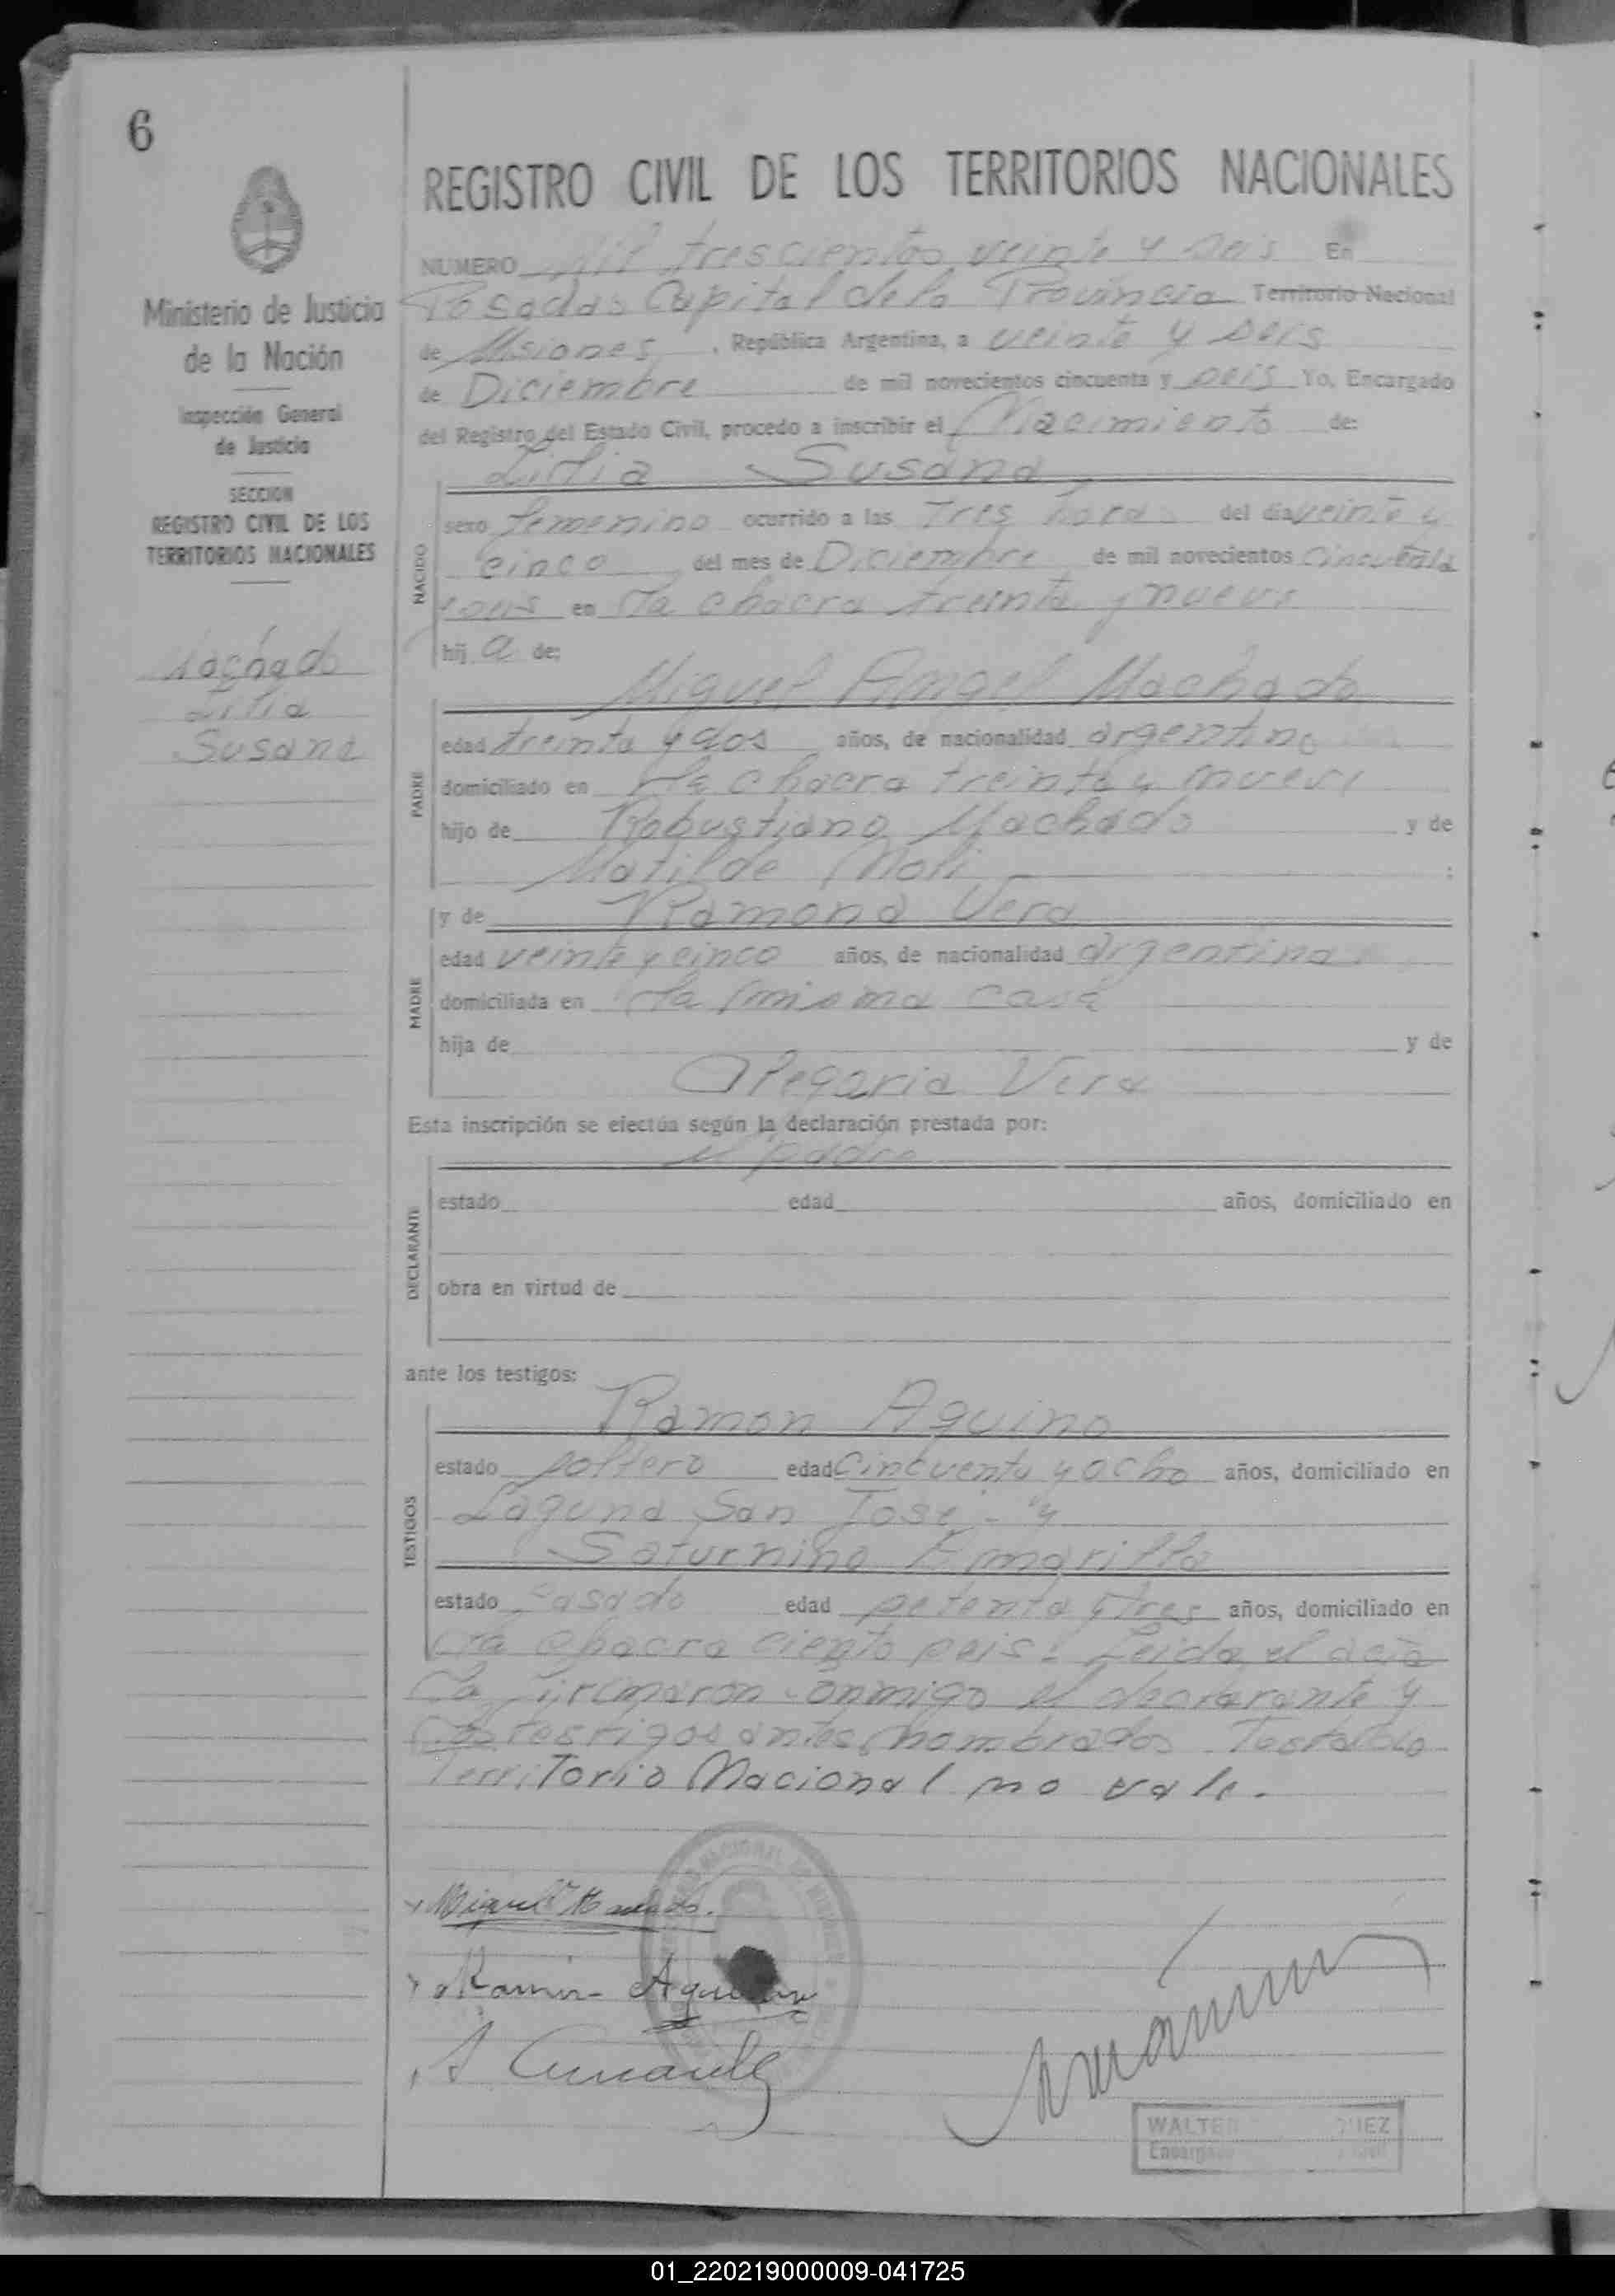 6
REGISTRO CIVIL DE LOS TERRITORIOS NACIONALES
Ministerio de Justicia
de la Nación
Inspección General
de Justicia
SECCION
REGISTRO CIVIL DE LOS
TERRITORIOS NACIONALES
Machado
Lilia
Susana
NUMERO Mil trescientos veinte y seis En
Posadas Capital de la Provincia Territorio Nacional
de Misiones, República Argentina, a veinte y seis
de Diciembre de mil novecientos cincuenta y seis Yo, Encargado
del Registro del Estado Civil, procedo a inscribir el Nacimiento de:
Lilia Susana
NACIDO
sexo femenino ocurrido a las tres horas del día veinte y
cinco del mes de Diciembre de mil novecientos cincuenta
en la chacra treinta y nueve
hij a de:
Miguel Angel Machado
PADRE
edad treinta y dos años, de nacionalidad argentino
domiciliado en la chacra treinta y nueve
hijo de Robustiano Machado y de
Matilde Moli;
MADRE
y de Ramona Vera
edad veinte y cinco años, de nacionalidad argentina
domiciliada en la misma casa
hija de y de
Olegaria Vera
Esta inscripción se efectúa según la declaración prestada por:
el padre
DECLARANTE
estado edad años, domiciliado en
obra en virtud de
ante los testigos:
TESTIGOS
Ramon Aquino
estado soltero edad cincuenta y ocho años, domiciliado en
Laguna San Jose - y
Saturnino Amarilla
estado casado edad setenta y tres años, domiciliado en
la chacra ciento seis: Leida el acta
la firmaron conmigo el declarante y
los testigos antes nombrados Testado
Territorio Nacional no vale.
Miguel A Machado.
Ramon Aquino
WALTER QUEZ
Encargado
01_220219000009-041725